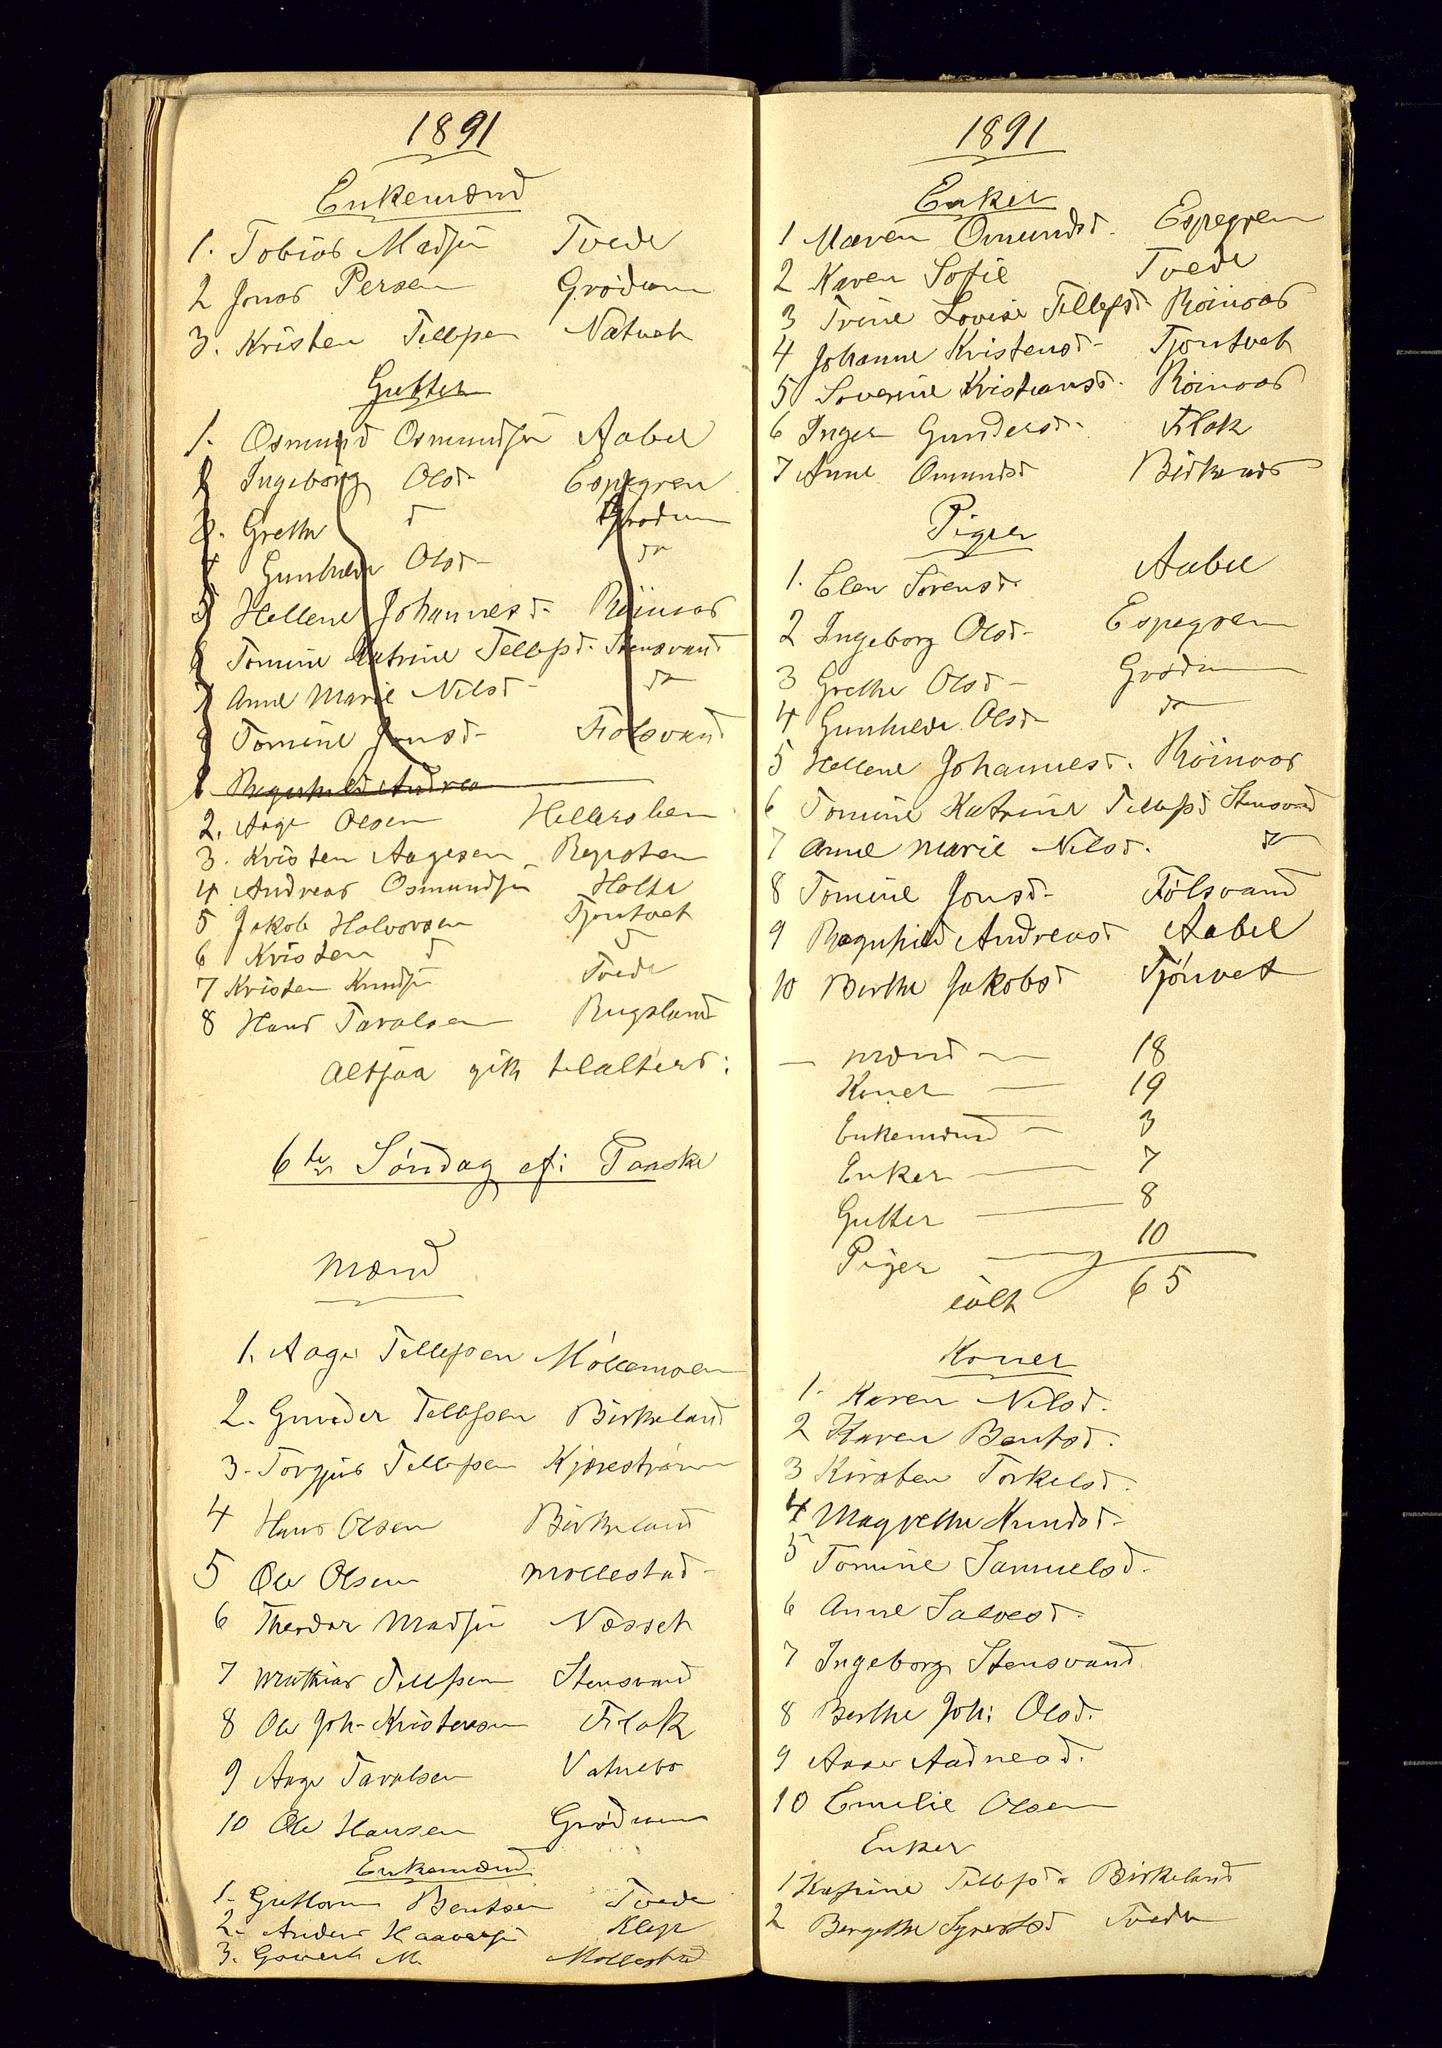 1891
Enkemænd
1. Tobias Madsen Tvede
2 Jonas Persen Grødum
3. Kristen Tellefsen Natvet
Gutter
1. Osmund Osmundsen Aabel
2 Ingeborg Olsd- Espegren
3. Grethe d Grødum
4 Gunhilde Olsd- do
5 Hellene Johannesd- Röinaas
6 Tomine Katrine Tellefsd- Stensvand
7 Anne Marie Nilsd- do
8 Tomine Jonsd- Fiolsvand
8 Ragnhild Andrea
2. Aage Olsen Hellersheien
3. Kristen Aagesen Repsten
4 Andreas Osmundsen Holte
5 Jakob Halvorsen Tjøntvet
6 Kristen d
7 Kristen Knudsen Tvede
8 Hans Taralsen Rugsland
Altsaa gik tilalters:
6te Søndag ef: Paaske
Mænd
1. Aage Tellefsen Møllemoen
2. Gunder Tellefsen Birkeland
3. Torgjus Tellefsen Kjærestrøm
4 Hans Olsen Birkeland
5 Ole Olsen Mollestad
6 Theodor Madsen Næsset
7 Mathias Tellefsen Stensvand
8 Ole Joh- Kristensen Flak
9 Aage Taralsen Vatnebo
10 Ole Hansen Grødum
Enkemænd
1. Guttorm Bentsen Tvede
2. Anders Haaversen Klep
3. M. Mollestad
1891
Enker
1 Maren Omundsd. Espegren
2 Karen Sofie Tvede
3 Trine Lovise Tellefsd- Röinaas
4 Johanne Kristensd- Tjøntvet
5 Severine Kristiansd. Röinaas
6 Inger Gundersd. Flak
7 Anne Omundsd Birkenes
Piger
1. Elen Sørensd. Aabel
2 Ingeborg Olsd- Espegren
3 Grethe Olsd- Grødum
4 Gunhilde Olsd- do
5 Hellene Johannesd. Röinaas
6 Tomine Katrine Tellefsd Stensvand
7 Anne Marie Nilsd. do
8 Tomine Jonsd- Fiølsvand
9 Ragnhild Andreasd Aabel
10 Birthe Jakobsd Tjønvet
- Mænd - 18
Koner - 19
Enkemænd - 3
Enker - 7
Gutter - 8
Piger - 10
ialt 65
Koner
1. Karen Nilsd.
2 Karen Bentsd.
3 Kirsten Torkelsd.
4 Magrethe Knudsd-
5 Tomine Samuelsd.
6 Anne Salvesd.
7 Ingeborg Stensvand
8 Berthe Joh: Olsd.
9 Aadnesd.
10 Emelie Olsen
Enker
1 Katrine Tellefsd- Birkeland
2 Bergithe Syvertsd Tvede